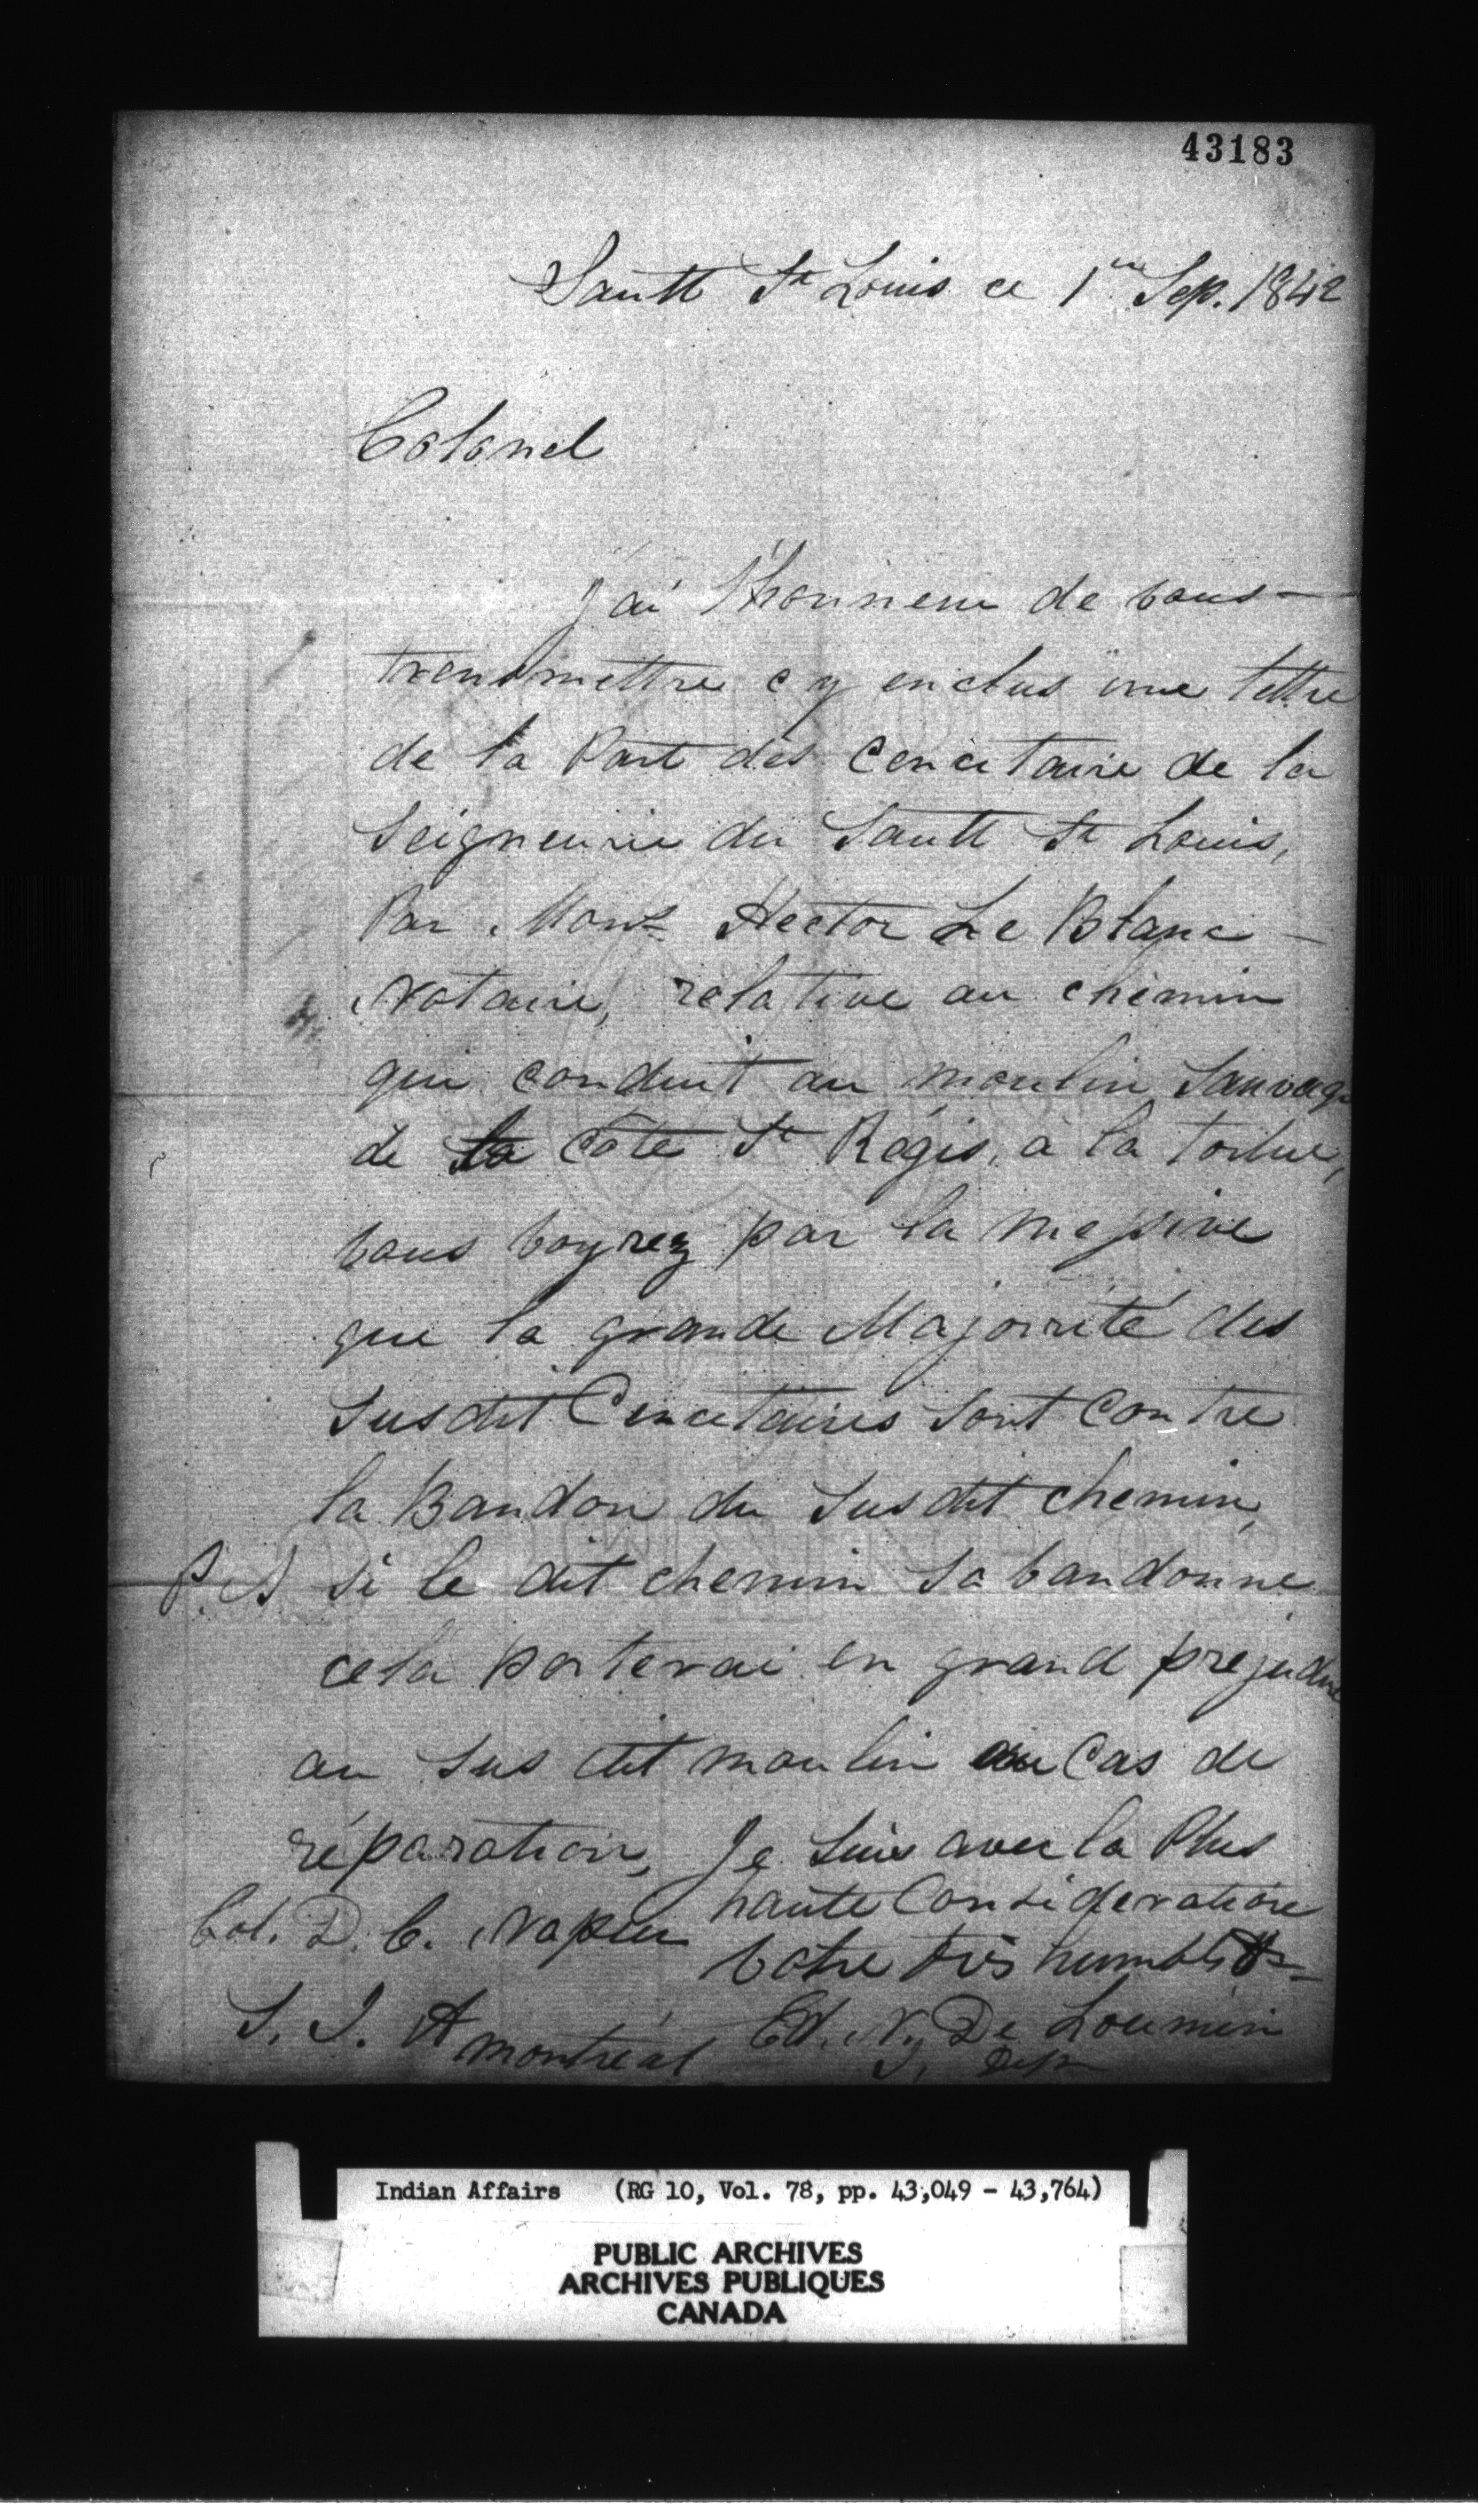 43183
Sault St Louis ce 1er Sep. 1842
Colonel
J'ai l'honneur de vous
transmettre cy enclus une lettre
de la Part des Cencitaire de la
Seigneurie du Sault St Louis,
Par Monsr Hector Le Blanc
Notaire, relative au chemin
qui conduit au moulin Sauvage
de la Côte St Régis, à la tortue,
vous voyrez par la missive
que la grande Majorité des
Susdit Cencitaires sont contre
la Bandon du Susdit chemin,
P.S si le dit chemin sa bandonne
cela porterai en grand prejudice
au Sus dit moulin au Cas de
réparation, Je Suis avec la Plus
haute Considération
Col. D. C. Napier
votre très humble
S. I. A
Montréal
Ed. N. De Lorimier
Indian Affairs (RG 10, Vol. 78, pp. 43,049 - 43,764)
PUBLIC ARCHIVES
ARCHIVES PUBLIQUES
CANADA